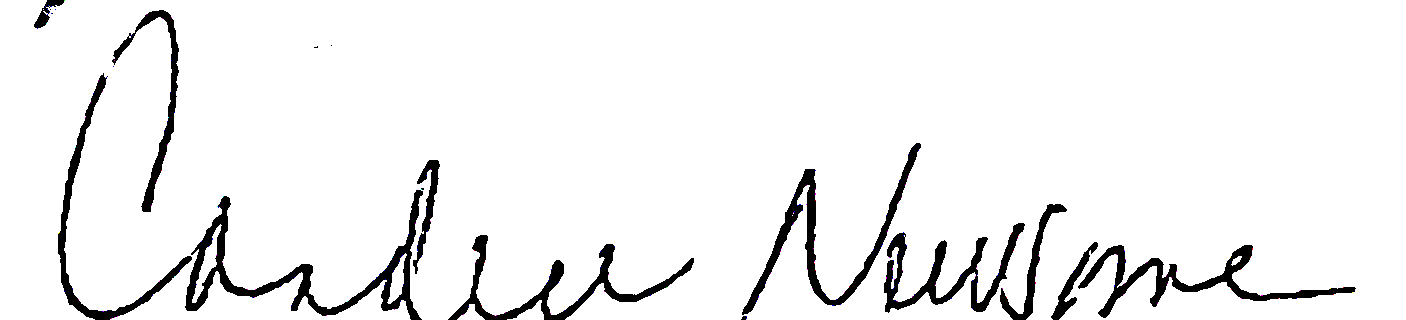 Candice Newsome